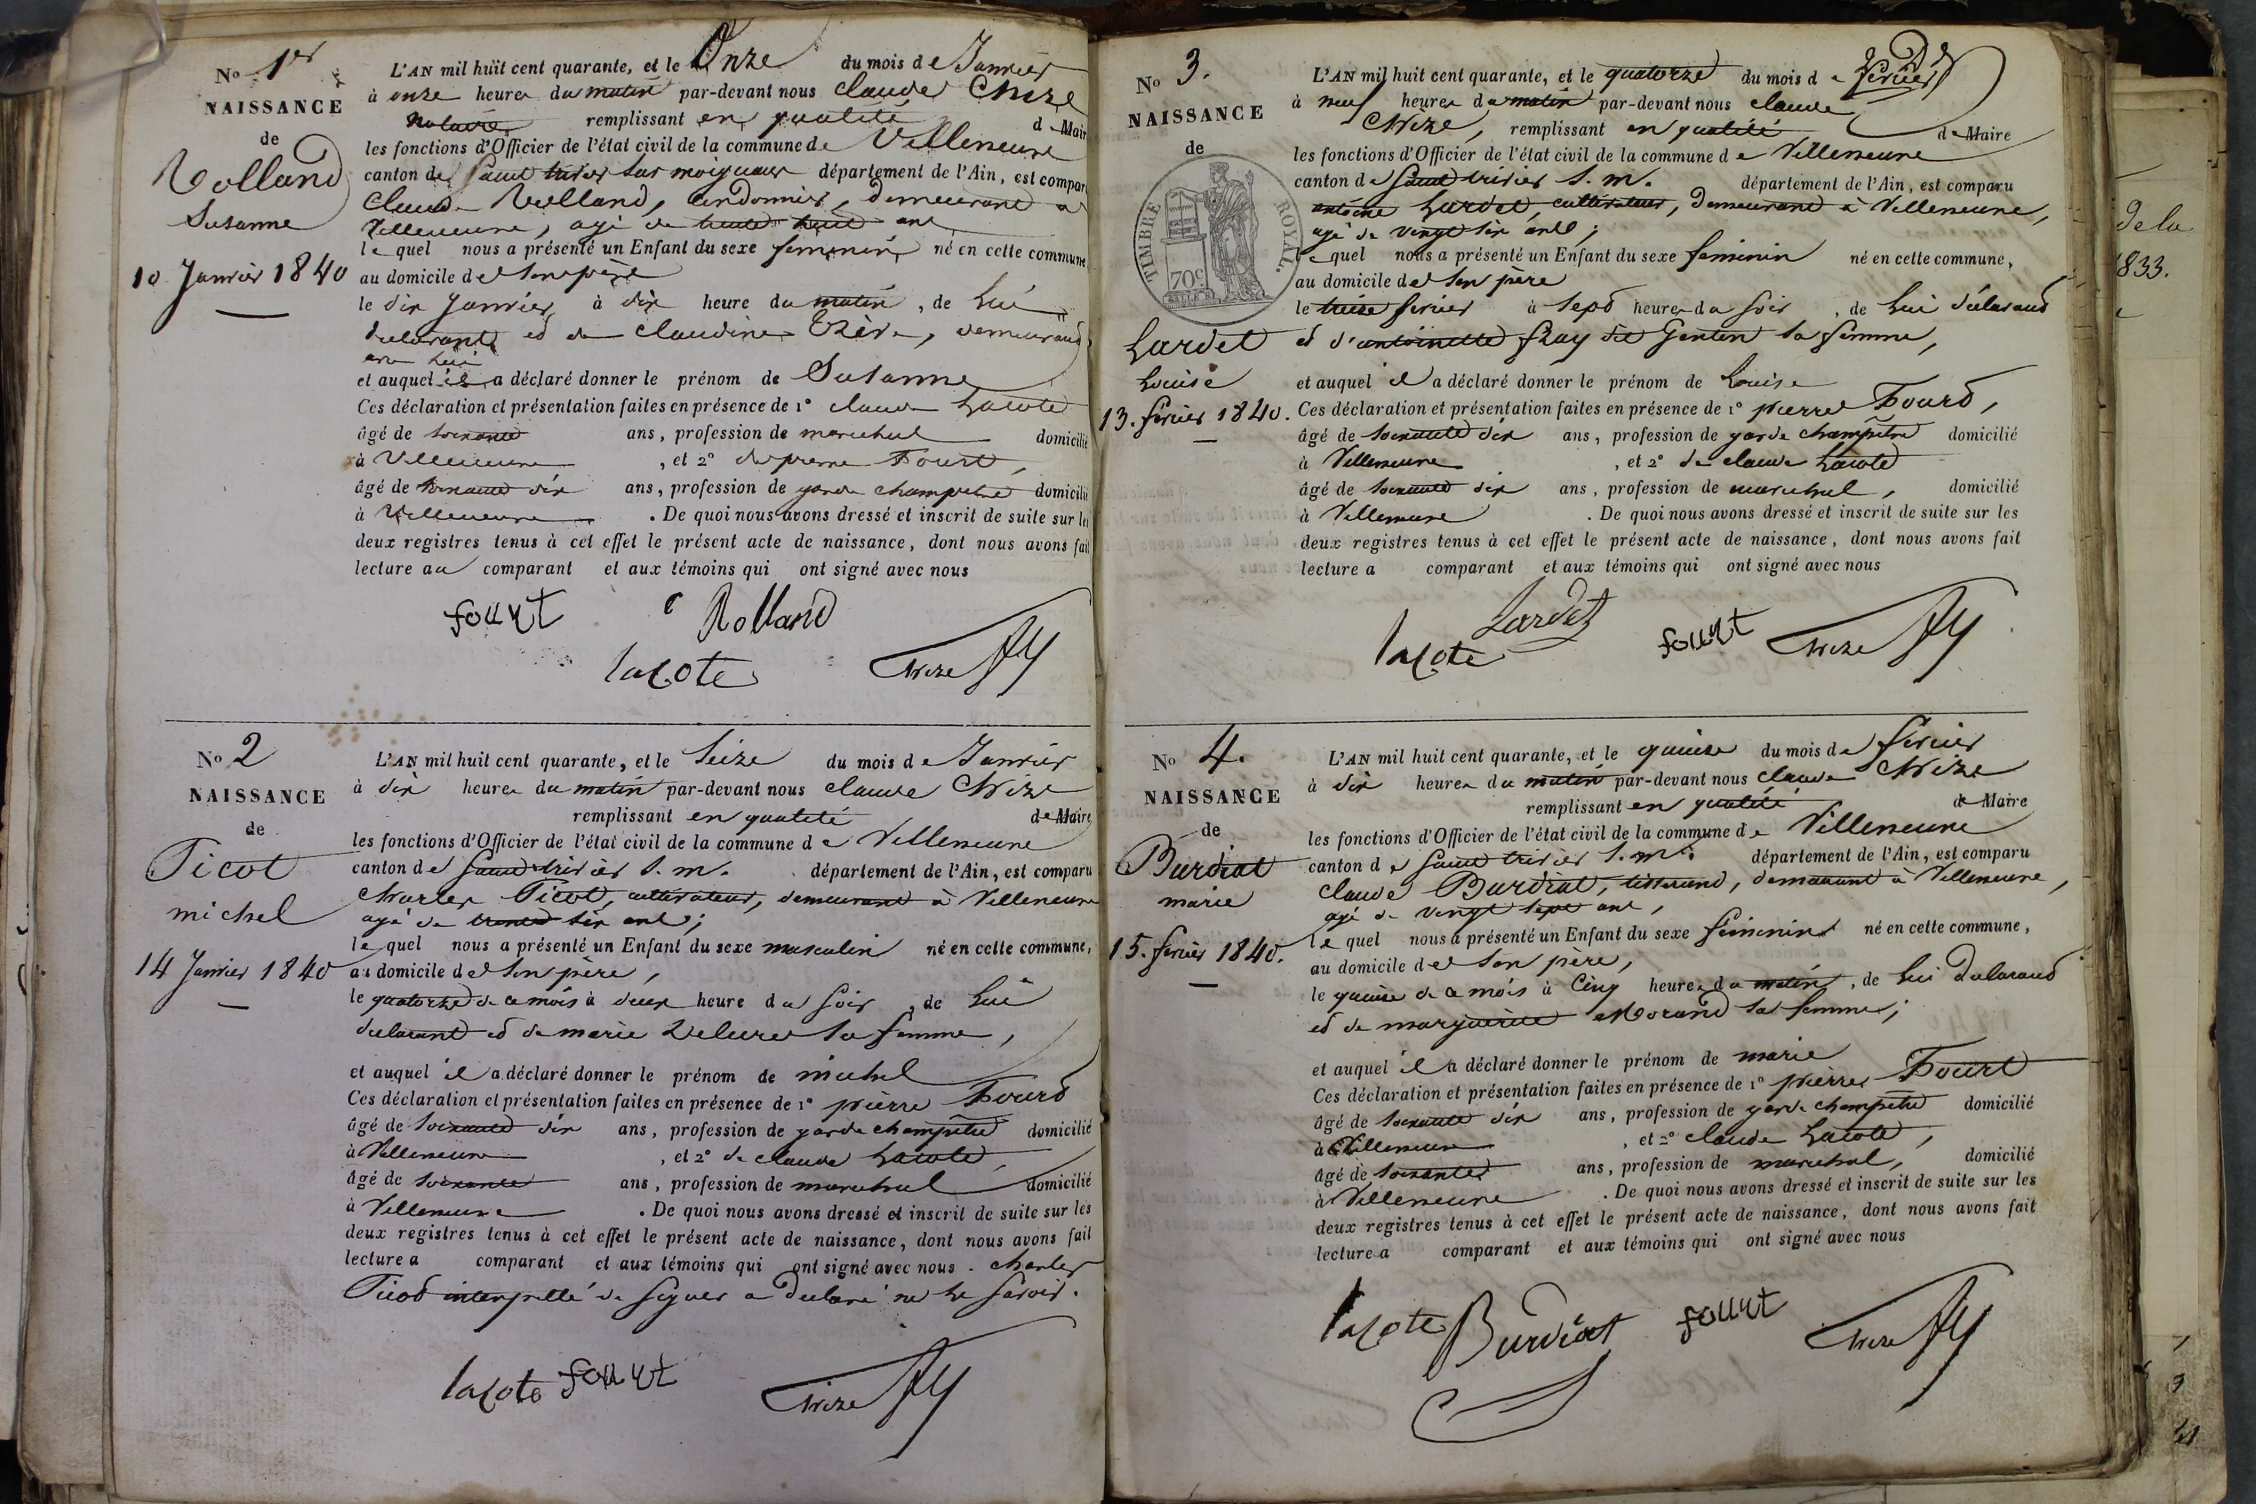 No 1er
NAISSANCE
de
Rolland
Susanne
10 Janvier 1840
L'AN mil huit cent quarante, et le Onze du mois de Janvier
à onze heures du matin par-devant nous Claude Chize
Notaire remplissant en qualité de Mair
les fonctions d'Officier de l'état civil de la commune de Villeneuve
canton de Saint trivier sur moignans département de l'Ain, est compar
Claude Rolland, Cordonnier, demeurant a
Villeneuve, agé de trente huit ans
le quel nous a présenté un Enfant du sexe feminin né en cette commune
au domicile de son père
le dix Janvier à dix heure du matin, de Lui
declarant et de Claudine demeurant
avec lui
et auquel il a déclaré donner le prénom de Susanne
Ces déclaration et présentation faites en présence de 1° claude Lacote
âgé de soixante ans, profession de marechal domicilié
à Villeneuve, et 2° de pierre Fourt,
âgé de soixante dix ans, profession de garde champetre domicilié
à Villeneuve. De quoi nous avons dressé et inscrit de suite sur les
deux registres tenus à cet effet le présent acte de naissance, dont nous avons fait
lecture au comparant et aux témoins qui ont signé avec nous
fourt C Rolland
lacote Chize
No 2
NAISSANCE
de
Ticot
michel
14 Janvier 1840
L'AN mil huit cent quarante, et le Seize du mois de Janvier
à dix heures du matin par-devant nous claude Chize
remplissant en qualité de Maire
les fonctions d'Officier de l'état civil de la commune de Villeneuve
canton de Saint trivier s. m. département de l'Ain, est comparu
Charles Ticot, cultivateur, demeurant à Villeneuve
agé de trente six ans;
le quel nous a présenté un Enfant du sexe masculin né en cette commune,
au domicile de son père,
le quatorze de ce mois à deux heure du soir, de Lui
declarant et de marie Velure sa femme,
et auquel il a déclaré donner le prénom de michel
Ces déclaration et présentation faites en présence de 1° pierre Fourt
âgé de soixante dix ans, profession de garde champêtre domicilié
à Villeneuve, et 2° de claude Lacote,
âgé de soixante ans, profession de marechal domicilié
à Villeneuve. De quoi nous avons dressé et inscrit de suite sur les
deux registres tenus à cet effet le présent acte de naissance, dont nous avons fait
lecture a comparant et aux témoins qui ont signé avec nous. Charles
Ticot interpellé de signer a declaré ne le savoir.
lacote fourt Chize
No 3.
NAISSANCE
de
TIMBRE ROYAL.
70c
Lardet
Louise
13. fevrier 1840.
L'AN mil huit cent quarante, et le quatorze du mois de fevrier
à neuf heures du matin par-devant nous claude
Chize, remplissant en qualité de Maire
les fonctions d'Officier de l'état civil de la commune de Villeneuve
canton de Saint trivier s. m. département de l'Ain, est comparu
antoine Lardet, cultivateur, demeurant à Villeneuve,
agé de vingt six ans;
le quel nous a présenté un Enfant du sexe feminin né en cette commune,
au domicile de son père
le treize fevrier à sept heures du soir, de Lui déclarant
et d'antoinette fray dit Genten sa femme,
et auquel il a déclaré donner le prénom de Louise
Ces déclaration et présentation faites en présence de 1° pierre Fourt,
âgé de soixante dix ans, profession de garde champêtre domicilié
à Villeneuve, et 2° de claude Lacote
âgé de soixante dix ans, profession de marechal, domicilié
à Villeneuve. De quoi nous avons dressé et inscrit de suite sur les
deux registres tenus à cet effet le présent acte de naissance, dont nous avons fait
lecture a comparant et aux témoins qui ont signé avec nous
Lardet
lacote fourt Chize
No 4.
NAISSANCE
de
Burdiat
marie
15. fevrier 1840.
L'AN mil huit cent quarante, et le quinze du mois de fevrier
à dix heures du matin par-devant nous claude Chize
remplissant en qualité de Maire
les fonctions d'Officier de l'état civil de la commune de Villeneuve
canton de Saint trivier s. m. département de l'Ain, est comparu
claude Burdiat, tisserand, demeurant à Villeneuve,
agé de vingt sept ans,
le quel nous a présenté un Enfant du sexe feminin né en cette commune,
au domicile de son père,
le quinze de ce mois à Cinq heures du matin, de Lui declarant
et de marguerite Morand sa femme;
et auquel il a déclaré donner le prénom de marie
Ces déclaration et présentation faites en présence de 1° pierre Fourt
âgé de soixante dix ans, profession de garde champetre domicilié
à Villeneuve, et 2° claude Lacote,
âgé de soixante ans, profession de marechal, domicilié
à Villeneuve. De quoi nous avons dressé et inscrit de suite sur les
deux registres tenus à cet effet le présent acte de naissance, dont nous avons fait
lecture a comparant et aux témoins qui ont signé avec nous
lacote Burdiat fourt Chize
de la
1833.